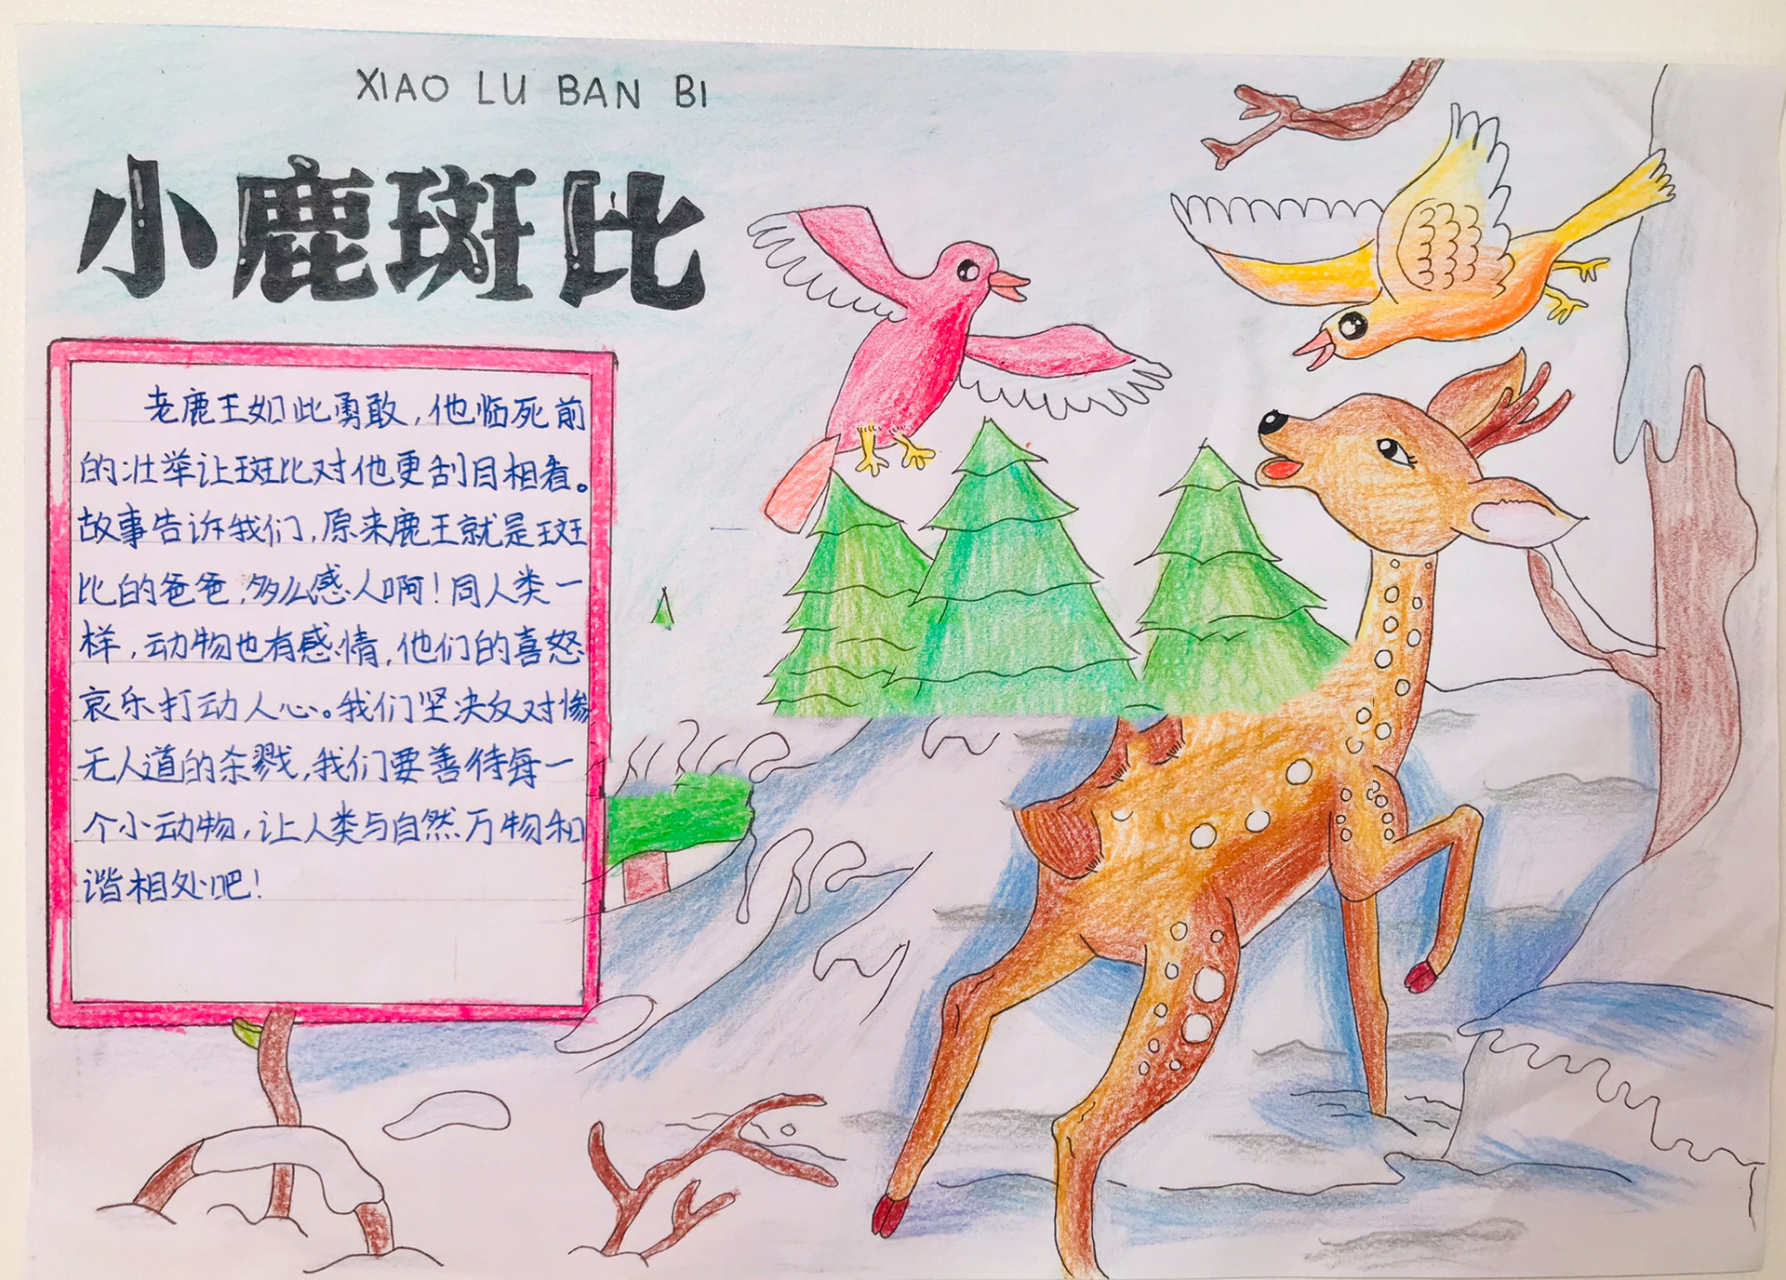 XIAO LU BAN BI
小鹿斑比
老鹿王如此勇敢，他临死前
的壮举让斑比对他更刮目相看。
故事告诉我们，原来鹿王就是斑
比的爸爸，多么感人啊！同人类一
样，动物也有感情，他们的喜怒
哀乐打动人心。我们坚决反对惨
无人道的杀戮，我们要善待每一
个小动物，让人类与自然万物和
谐相处吧！